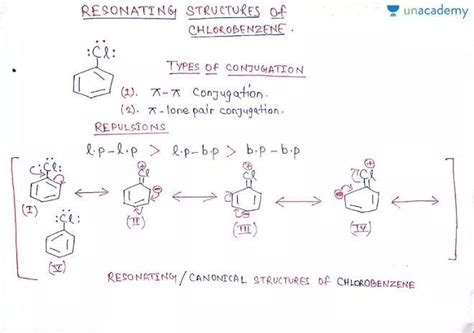 RESONATING STRUCTURES Of
CHLOROBENZENE.
unacademy
:Cl:
TYPES OF CONJUGATION
(1). π-π Conjugation.
(2). π-lone pair conjugation.
REPULSIONS
l.p-l.p > l.p-b.p > b.p-b.p
:Cl: ⊕Cl ⊕Cl ⊕Cl
(I) (II) (III) (IV)
:Cl:
(V)
RESONATING/CANONICAL STRUCTURES OF CHLOROBENZENE